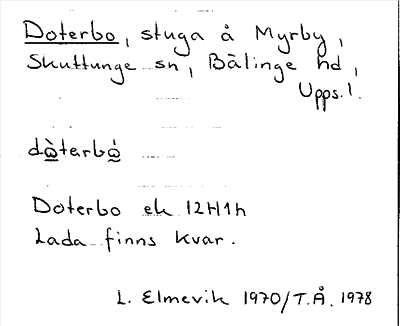 Doterbo, stuga å Myrby,
Skuttunge sn, Bälinge hd,
Upps. l.
dὼtərbω̇
Doterbo ek 12H1h
Lada finns kvar.
L. Elmevik 1970/T.Å. 1978